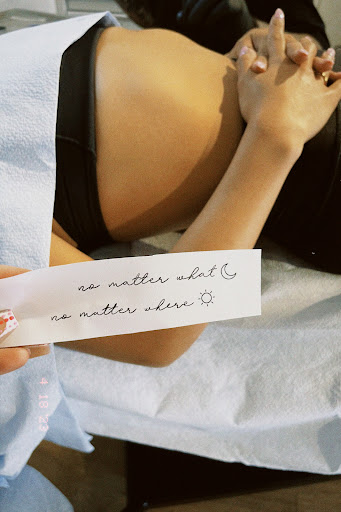 no matter what
no matter where
4 18 23